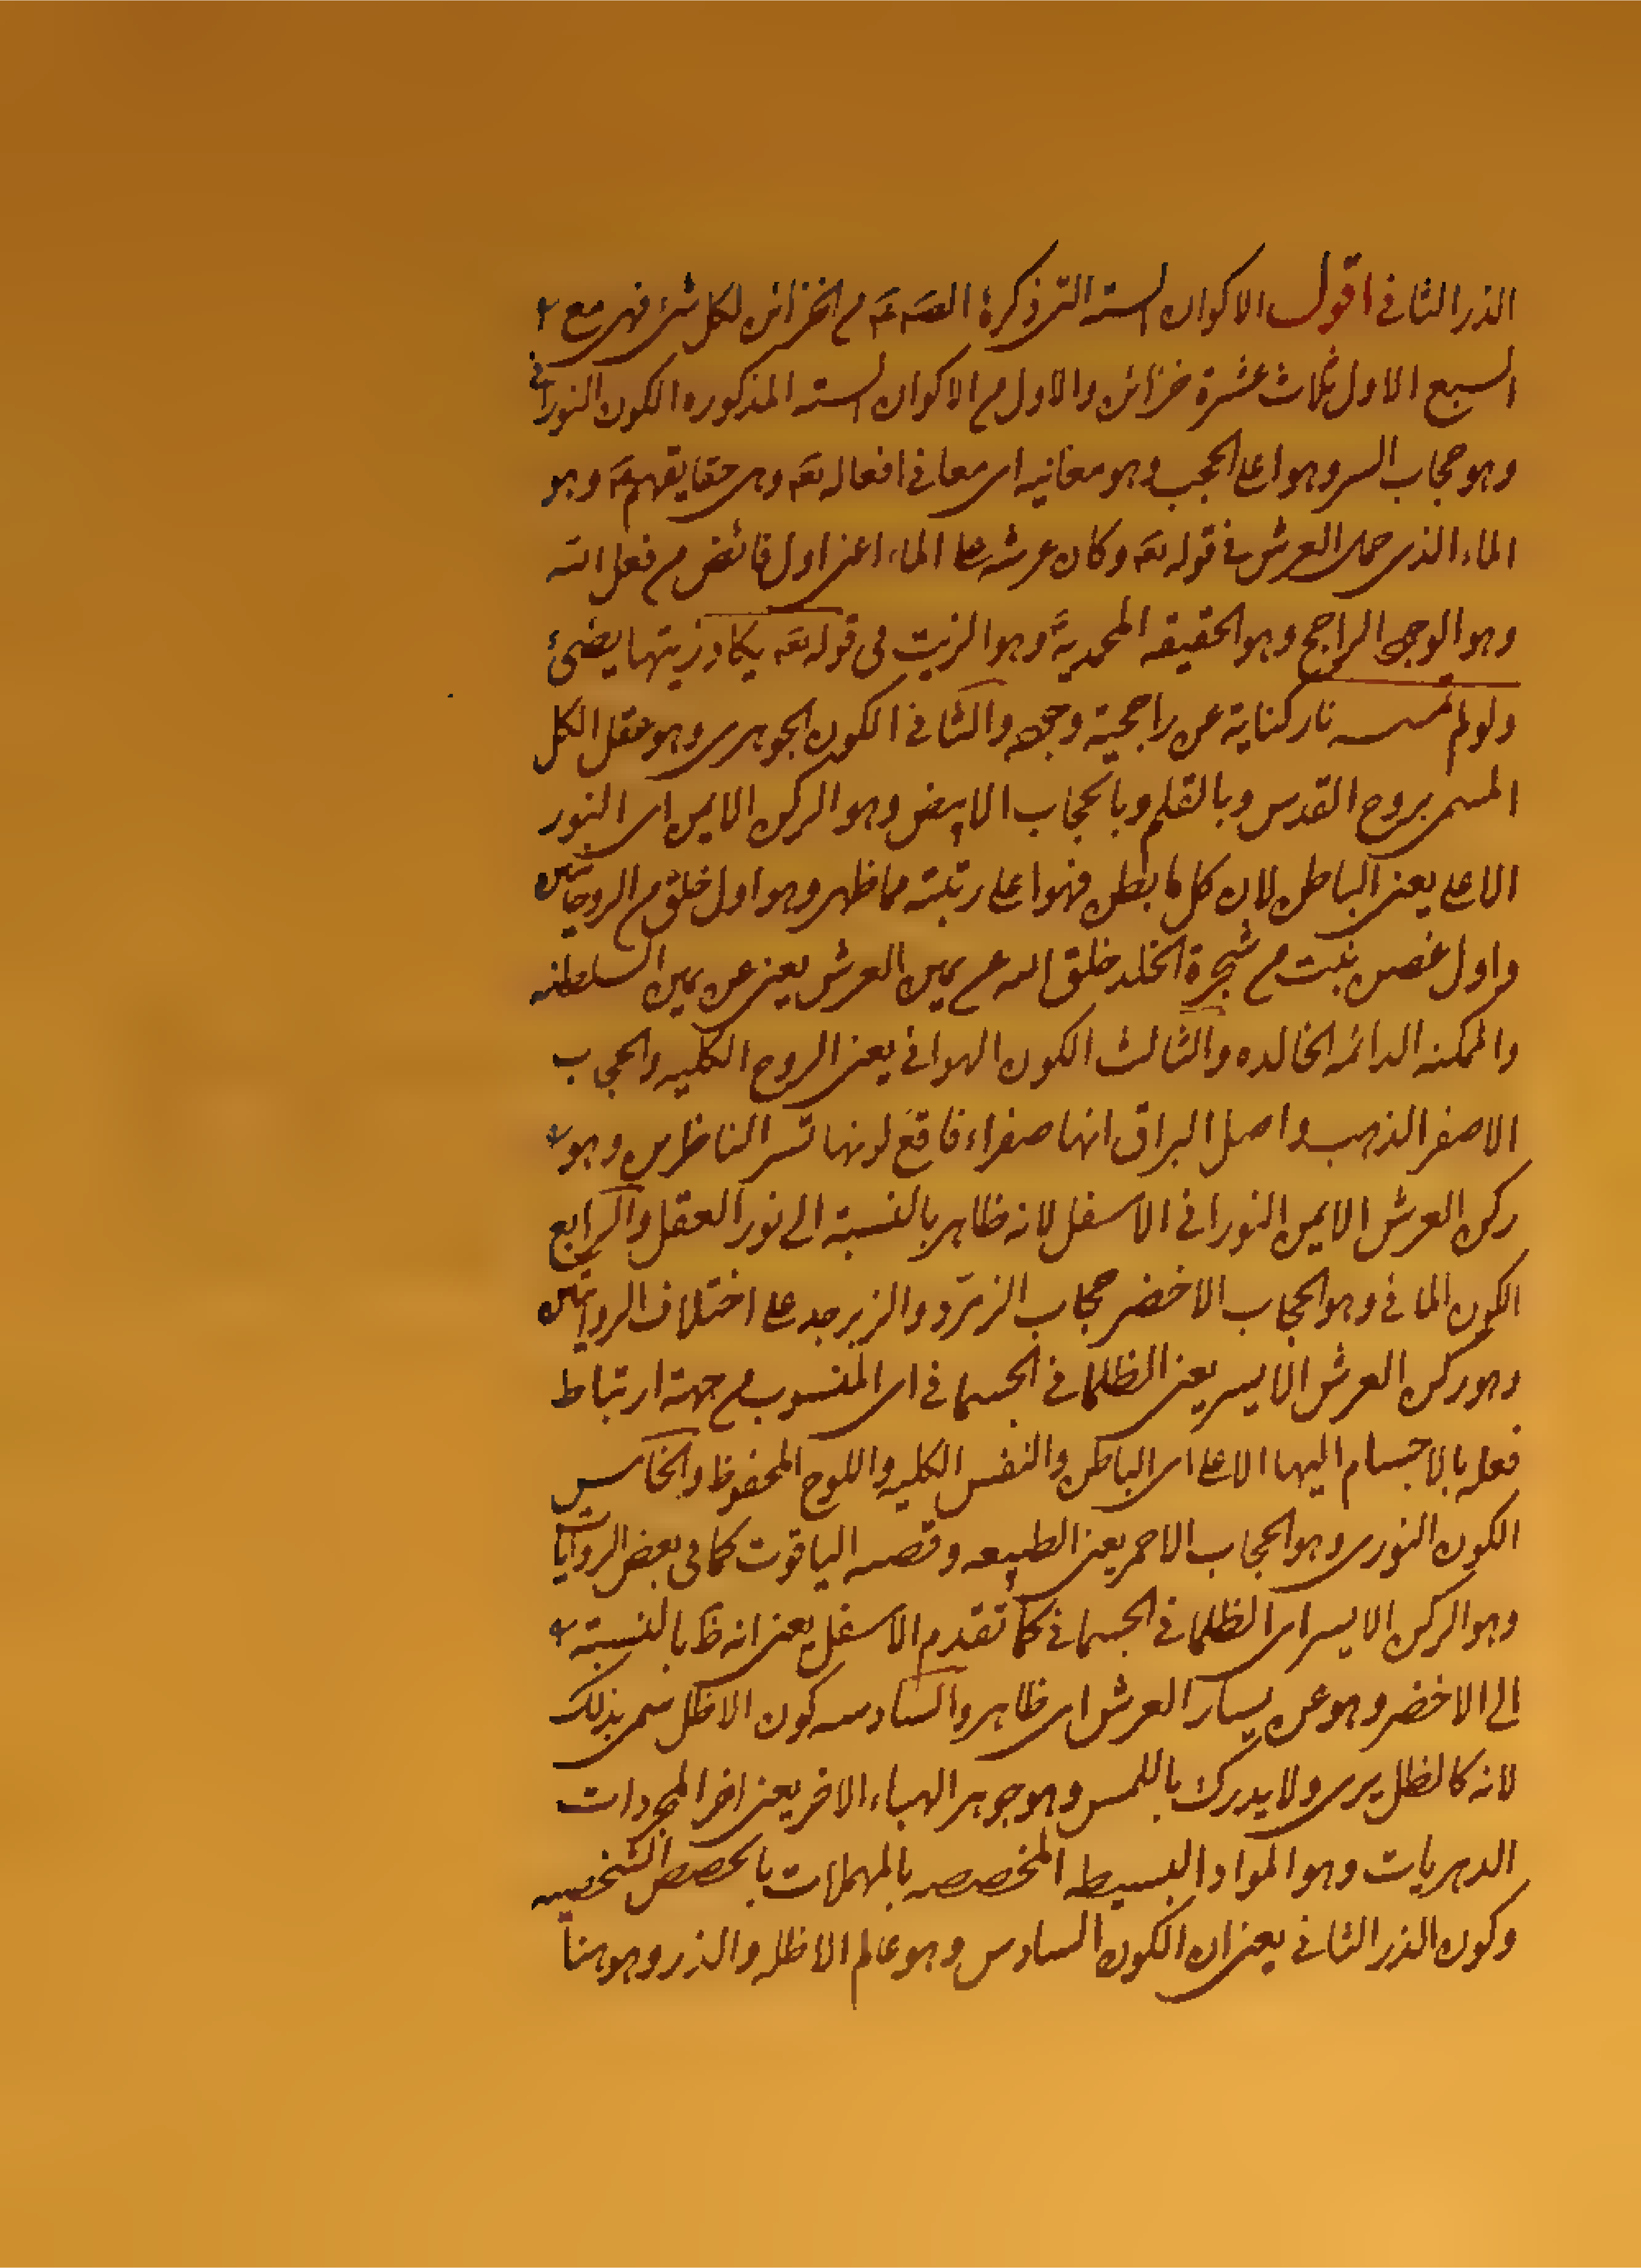 الذر الثاني اقول الاكوان الستة التي ذكرها الصـ عـ من الخزائن لكل شئ فهي مع
السبع الاول ثلاث عشرة خزائن والاول من الاكوان الستة المذكوره الكون النوراني
وهو حجاب السر وهو اعلى الحجب وهو معانيه اى معاني افعاله تعـ وهى حقايقهم عـ وهو
الماء الذى حمل العرش في قوله تعـ وكان عرشه على الماء اعنى اول فائض من فعل الله
وهو الوجود الراجح وهو الحقيقه المحمدية وهو الزيت فى قوله تعـ يكاد زيتها يضئ
ولو لم تمسسه نار كناية عن راجحية وجوده والثاني الكون الجوهرى وهو عقل الكل
المسمى بروح القدس وبالقلم وبالحجاب الابيض وهو الركن الايمن اى النور
الاعلى يعنى الباطن لان كل ما بطن فهو اعلى رتبته مما ظهر وهو اول خلق من الروحانيين
واول غصن نبتت من شجرة الخلد خلق الله عن يمين العرش يعنى عن يمين السلطنه
والمكنه الدائمه الخالده والثالث الكون الهوائي يعنى الروح الكليه والحجاب
الاصفر الذهب واصل البراق انها صفراء فاقع لونها تسر الناظرين وهو
ركن العرش الايمن النوراني الاسفل لانه ظاهر بالنسبة الى نور العقل والرابع
الكون المائي وهو الحجاب الاخضر حجاب الزمرّد والزبرجد على اختلاف الروايتين
وهو ركن العرش الايسر يعنى الظلماني الجسماني اى المنسوب من جهة ارتباط
فعله بالاجسام اليها الاعلى اى الباطن والنفس الكليه واللوح المحفوظ والخامس
الكون النورى وهو الحجاب الاحمر يعنى الطبيعه وقصبه الياقوت كما فى بعض الروايات
وهو الركن الايسر اى الظلماني الجسماني كما تقدم الاسفل يعنى انه ظـ بالنسبة
الى الاخضر وهو عن يسار العرش اى ظاهره والسادسه كون الاظل سمى بذلك
لانه كالظل يرى ولا يدرك باللمس وهو جوهر الهباء الاخر يعنى اخر المجردات
الدهريات وهو المواد البسيطه المخصصه بالمهملات بالحصص الشخصيه
وكون الذر الثاني يعنى ان الكون السادس وهو عالم الاظله والذر وهو هنا